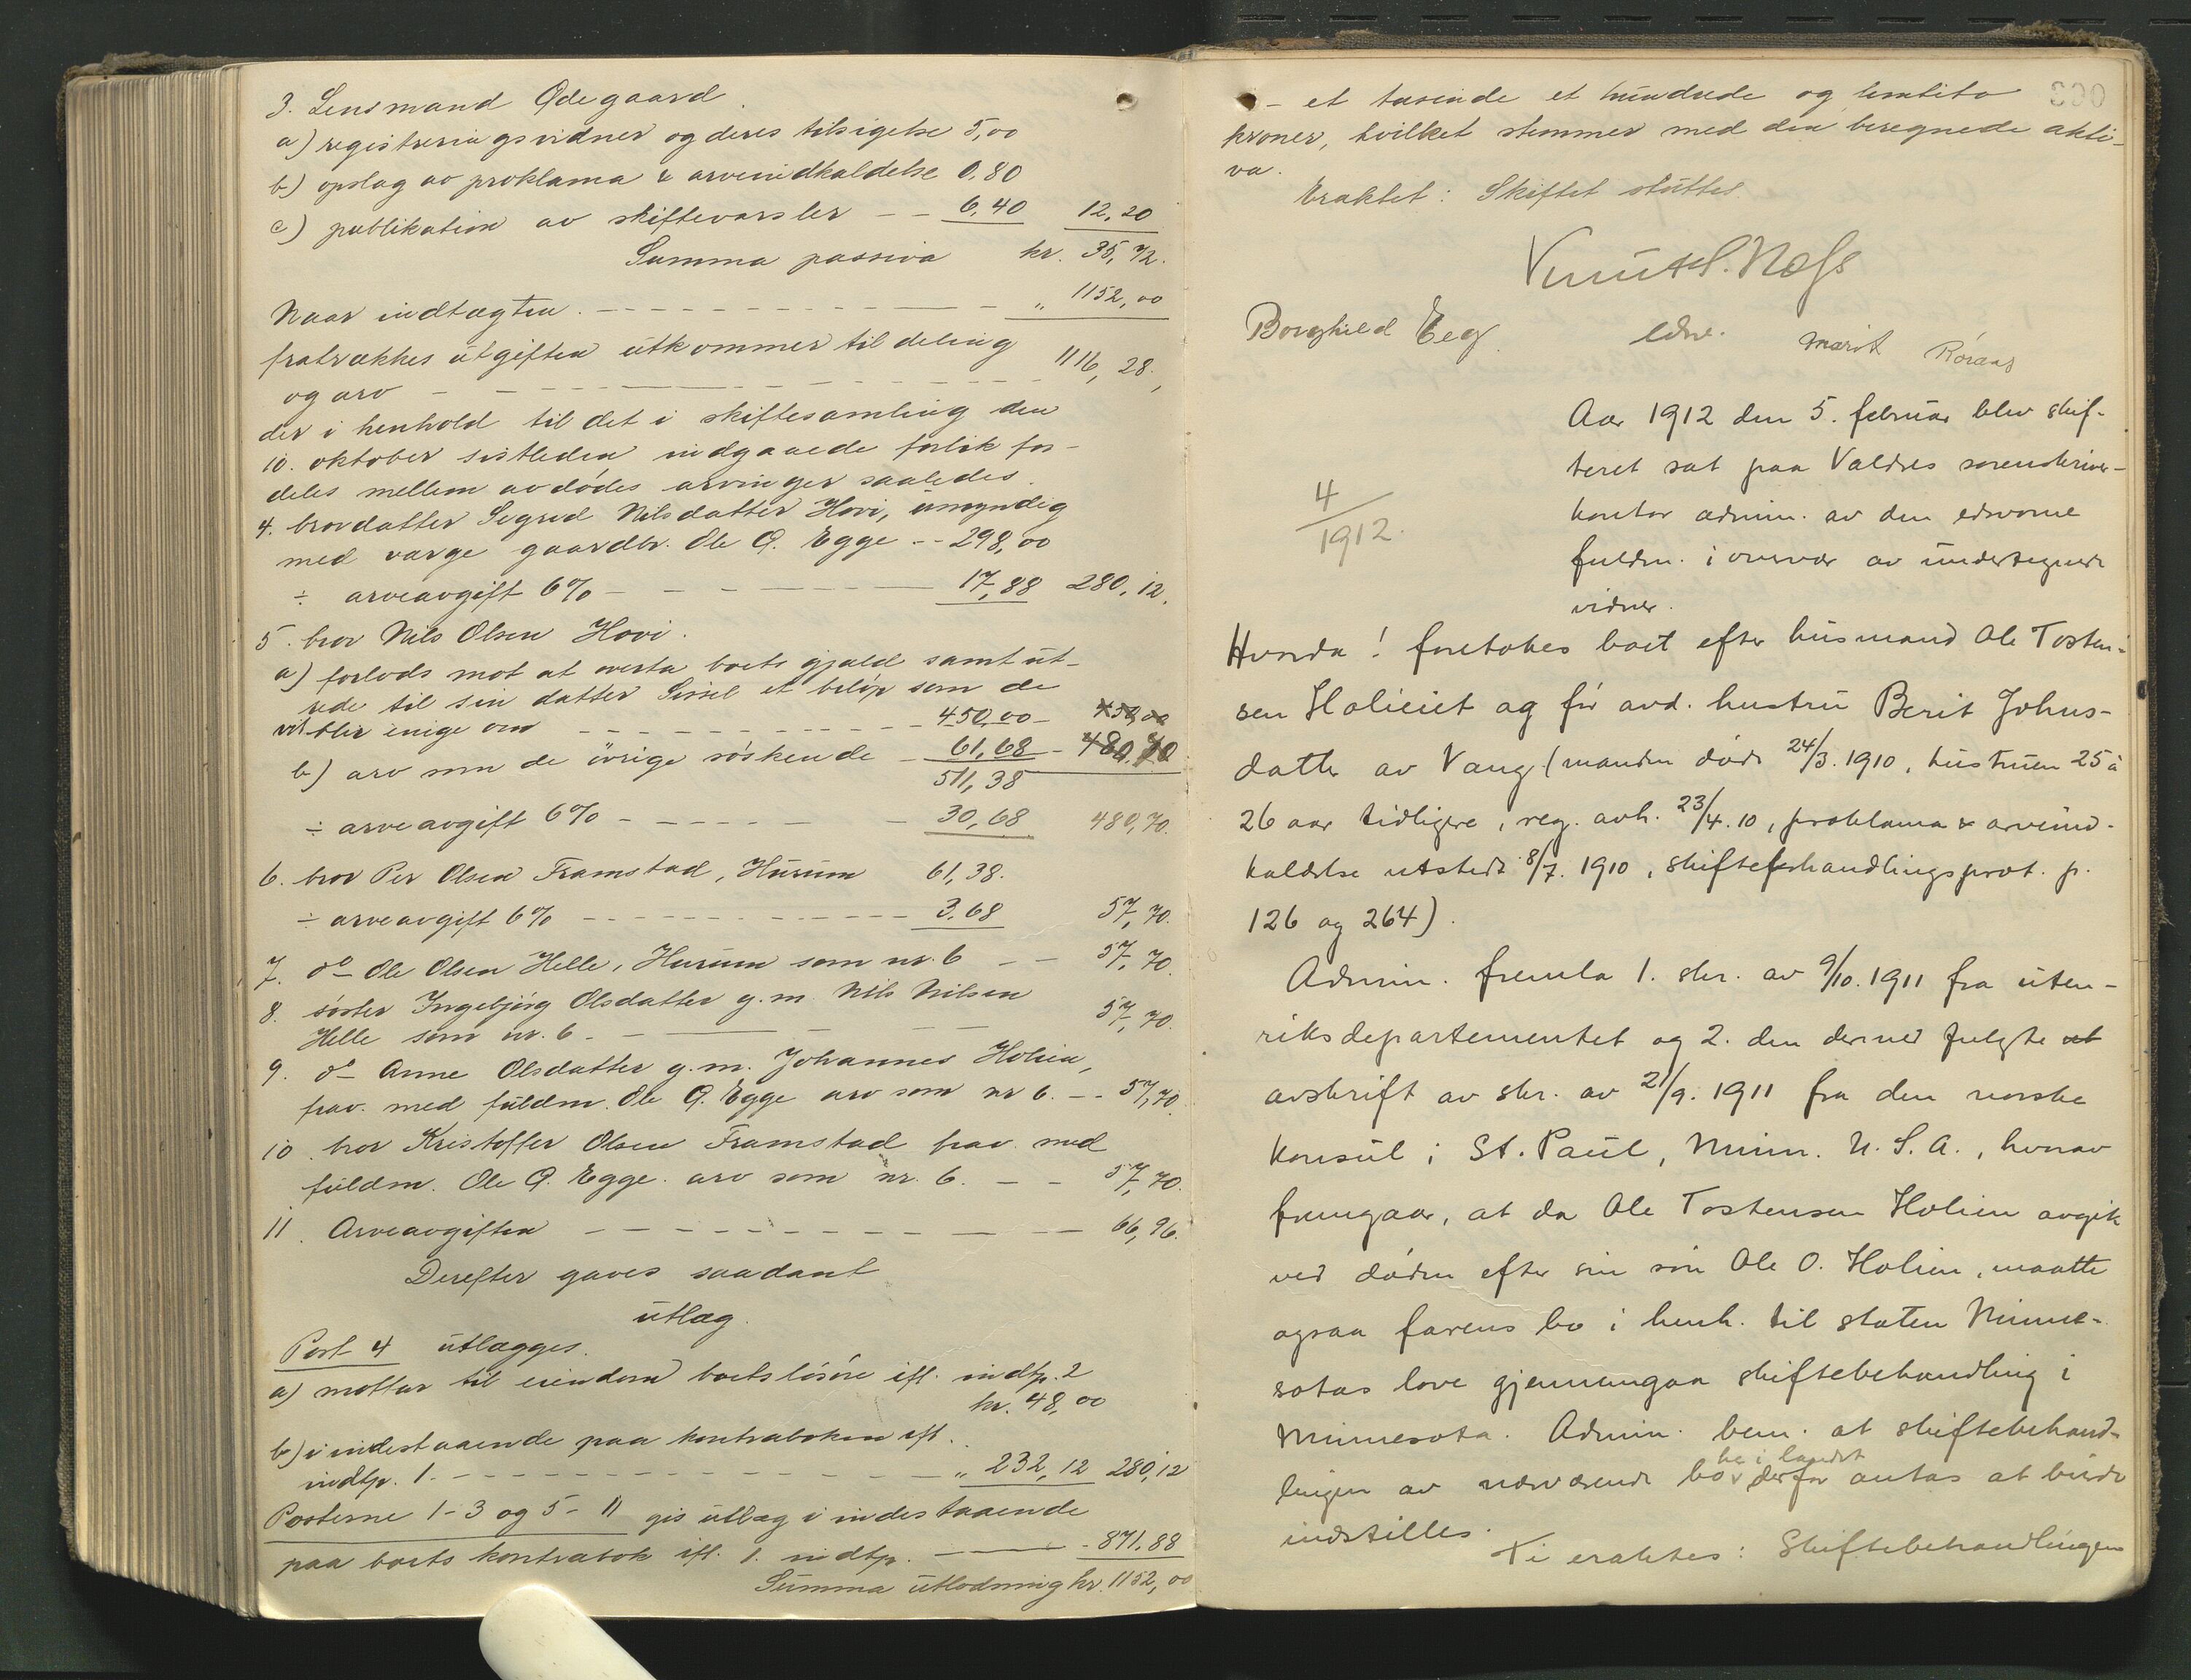 3. Lensmand Ødegaard.
a) registreringsvidner og deres tilsigelse 5,00
b) opslag av proklama & arveindkaldelse 0,80
c) publikation av skiftevarsler - - 6,40 12,20
Summa passiva kr. 35,72.
Naar indtægten - - - - - „ 1152,00
fratrækkes utgiften utkommer til deling
og arv - - - - - 1116,28,
der i henhold til det i skiftesamling den
10. oktober sistleden indgaaede forlik for-
deles mellem avdødes arvinger saaledes.
4. brordatter Sigrid Nilsdatter Hovi, umyndig
med værge gaardbr. Ole O. Egge -- 298,00
÷ arveavgift 6% - - - - 17,88 280,12.
5. bror Nils Olsen Hovi.
a) forlods mot at overta boets gjæld samt ut-
rede til sin datter Sissel et beløp som de
vil blir enige om - - - - 450,00 - 450,00
b) arv som de øvrige søskende - 61,68 - 480,70
511,38
÷ arveavgift 6% - - - - - 30,68 480,70.
6. bror Per Olsen Framstad, Hurum 61,38.
÷ arveavgift 6% - - - - - 3,68 57,70.
7. do Ole Olsen Helle, Hurum som nr. 6 - - 57,70.
8. søster Ingebjørg Olsdatter g.m. Nils Nilsen
Helle som nr. 6 - - - - 57,70.
9. do Anne Olsdatter g.m. Johannes Holien,
frav. med fuldm. Ole O. Egge arv som nr 6. - - 57,70
10. bror Kristoffer Olsen Framstad frav. med
fuldm. Ole O. Egge. arv som nr. 6. - - 57,70.
11. Arveavgiften - - - - - 66,96.
Derefter gaves saadant
utlæg.
Post 4 utlægges.
a) mottar til eiendom boets løsøre ifl. indtp. 2
kr. 48,00
b) i indestaaende paa kontraboken ifl.
indtp. 1. - - - - - „ 232,12 280,12
Posterne 1-3 og 5-11 gis utlæg i indestaaende
paa boets kontrabok ifl. 1. indtp. - - 871,88
Summa utlodning kr. 1152,00
- et tusinde et hundrede og femtito
kroner, hvilket stemmer med den beregnede akti-
va.
Eraktet: Skiftet sluttes.
Knut S. Næss
Borghild Eeg. edsv. Marit
4/1912.
Aar 1912 den 5. februar blev skif-
teret sat paa Valdres sorenskriver-
kontor admin. av den edsvorne
fuldm. i overvær av undertegnede
vidner.
Hvorda! foretokes boet efter husmand Ole Tosten-
sen Holieiet og før avd. hustru Berit Johns-
datter av Vang (manden døde 24/3. 1910, hustruen 25 à
26 aar tidligere, reg. avh. 23/4. 10, proklama & arveind-
kaldelse utstedt 8/7. 1910, skifteforhandlingsprot. p.
126 og 264).
Admin. fremla 1. skr. av 9/10. 1911 fra uten-
riksdepartementet og 2. den dermed fulgte at
avskrift av skr. av 21/9. 1911 fra den norske
konsul i St. Paul, Minn. U. S. A., hvorav
fremgaar, at da Ole Tostensen Holien avgik
ved døden efter sin søn Ole O. Holien, maatte
ogsaa farens bo i henh. til staten Minne-
sotas love gjennemgaa skiftebehandling i
Minnesota. Admin. bem. at skiftebehand-
lingen av nærværende bo her i landet derfor antas at burde
indstilles.
Ti eraktes: Skiftebehandlingen